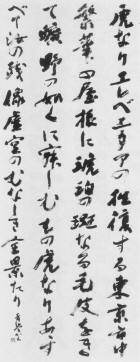 虎なりエレベエタアの往復する東京市中
繁華の屋根に琥珀の斑なる毛皮をき
て曠野の如くに寂しむもの虎なりああす
べて汝の残像虚空のむなしき全景たり